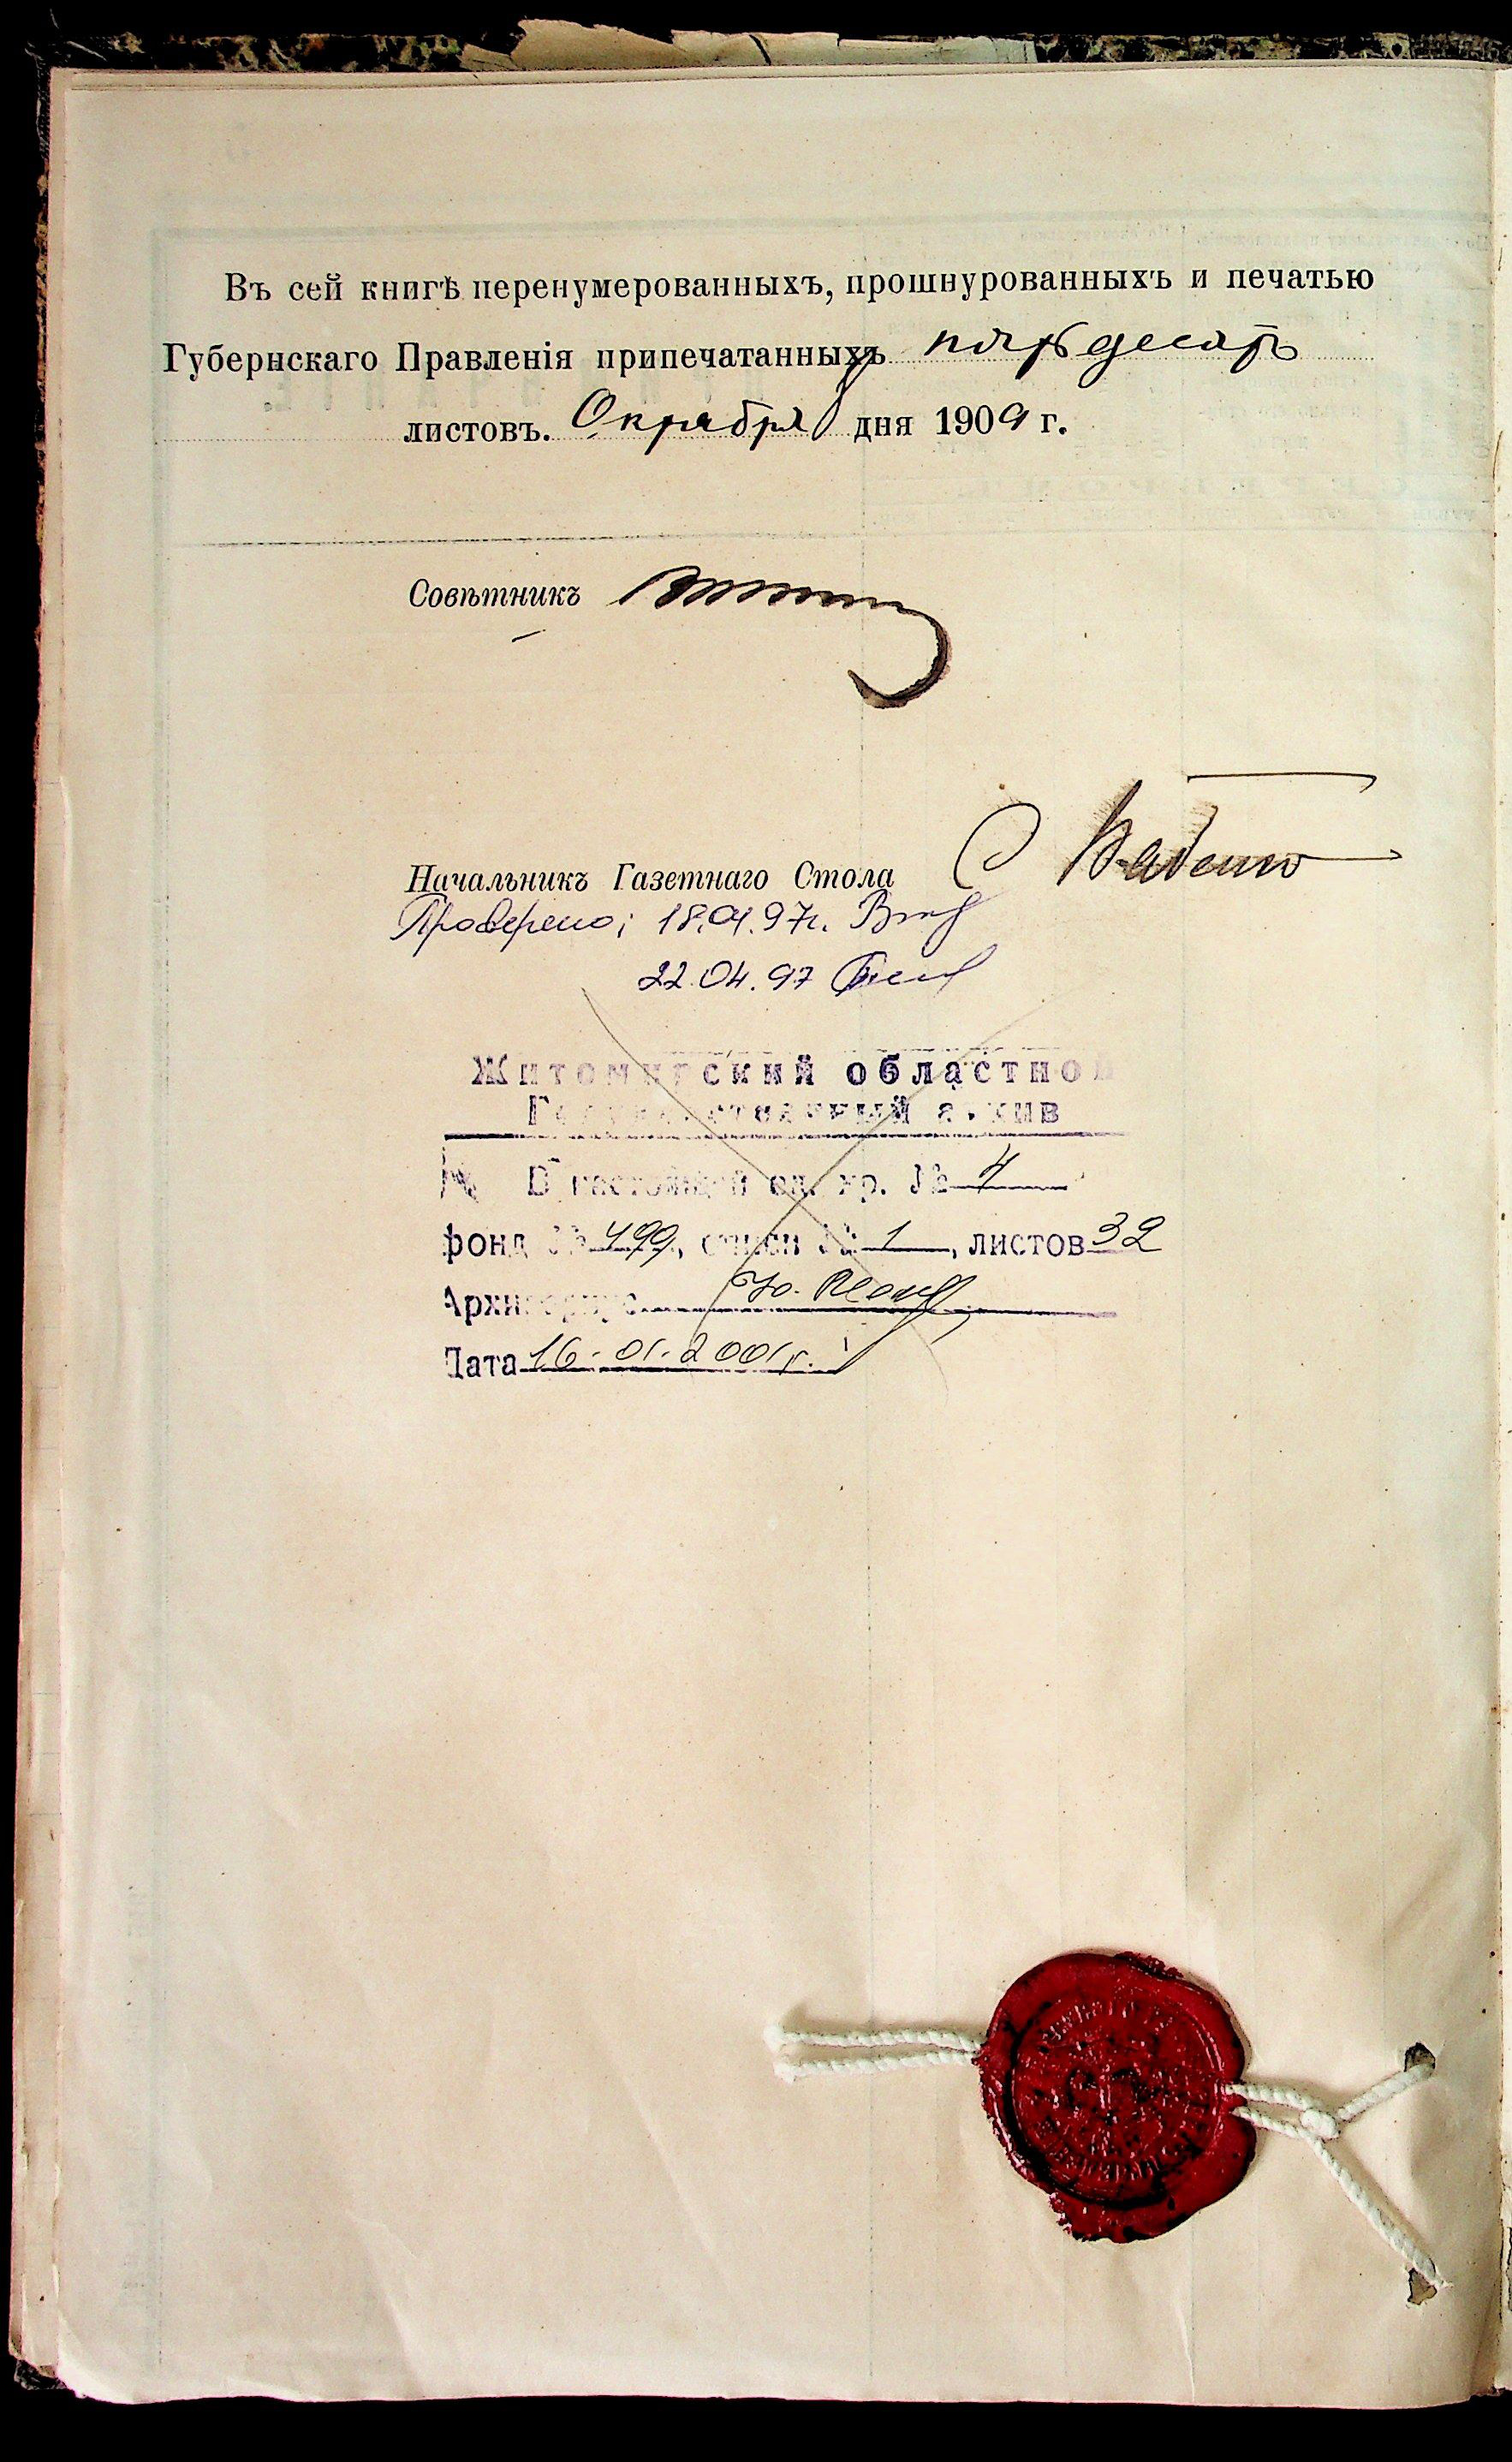 Въ сей книгѣ перенумерованныхъ, прошнурованныхъ и печатью
Губернскаго Правленія припечатанныхъ пятьдесятъ
листовъ. Октября дня 1909 г.
Совѣтникъ
Начальникъ Газетнаго Стола
Проверено: 18.04.97г.
22.04.97
Житомирский областной
Государственный архив
В настоящей ед. хр. № 4
фонд № 499, описи № 1, листов 32
Архивариус
Дата 16.01.2001г.